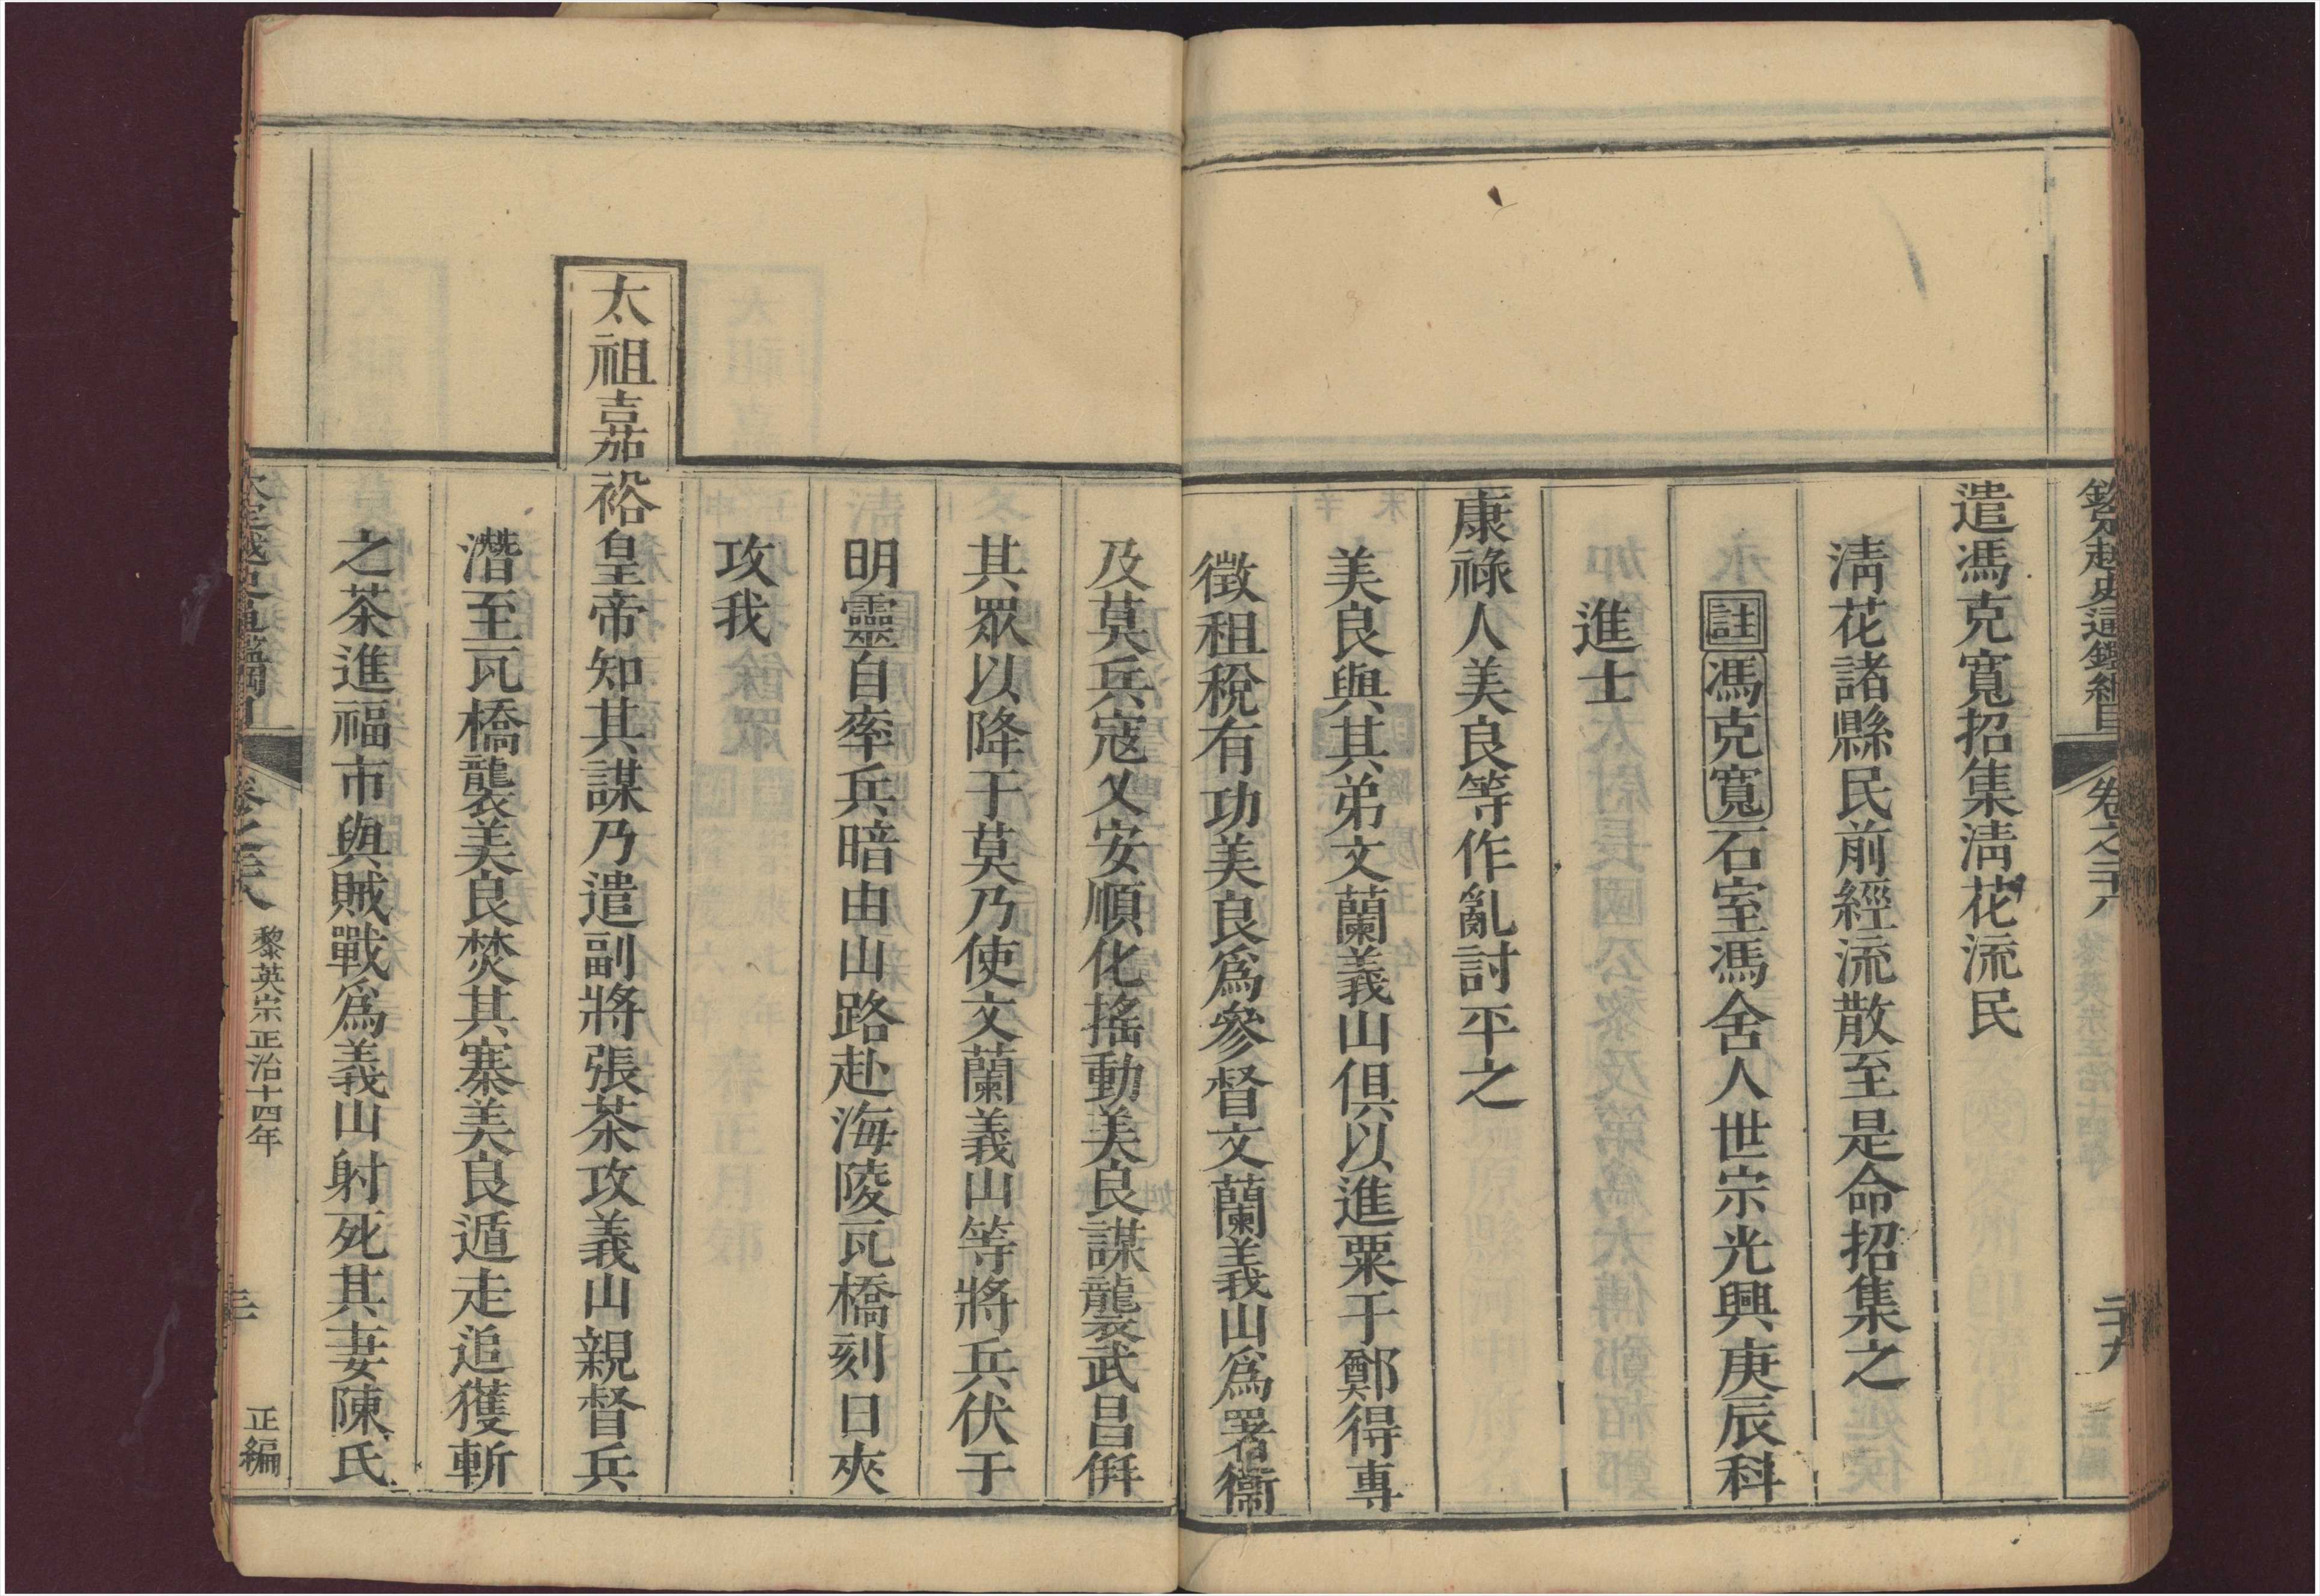 欽定越史通鑑綱目 卷之二十八 二十九
遣馮克寬招集清花流民
清花諸縣民前經流散至是命招集之
註馮克寬石室馮舍人世宗光興庚辰科
進士
康祿人美良等作亂討平之
美良與其弟文蘭義山俱以進粟于鄭得專
徵租稅有功美良爲參督文蘭義山爲署衞
及莫兵寇乂安順化搖動美良謀襲武昌倂
其眾以降于莫乃使文蘭義山等將兵伏于
明靈自率兵暗由山路赴海陵瓦橋刻日夾
攻我
太祖嘉裕皇帝知其謀乃遣副將張茶攻義山親督兵
潛至瓦橋襲美良焚其寨美良遁走追獲斬
之茶進福市與賊戰爲義山射死其妻陳氏
黎英宗正治十四年 三十 正編